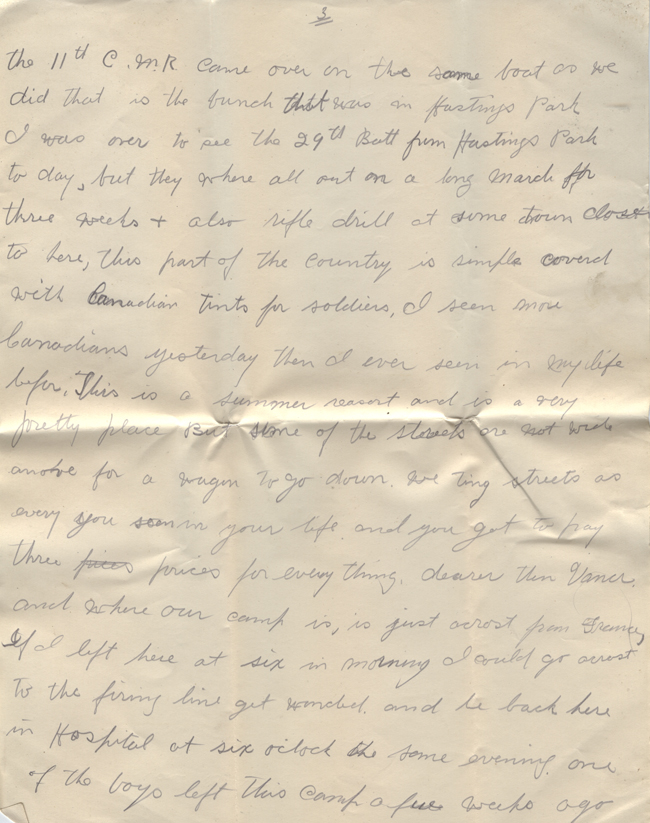 3
the 11th C.M.R came over on the same boat as we
did that is the bunch that was in Hastings Park
I was over to see the 29th Batt from Hastings Park
to day, but they where all out on a long march for
three weeks + also rifle drill at some town close
to here, this part of the country is simple coverd
with Canadian tints for soldiers, I seen more
Canadians yesterday then I ever seen in my life
befor, This is a summer reasort and is a very
pretty place But some of the streets are not wide
for a wagon to go down. streets as
every you seen in your life and you got to pay
three prices for every thing. dearer then Vancr.
and where our camp is, is just acrost from France,
If I left here at six in morning I could go acrost
to the firing line get wonded. and be back here
in Hospital at six oclock the same evening. one
of the boys left this camp a few weeks ago